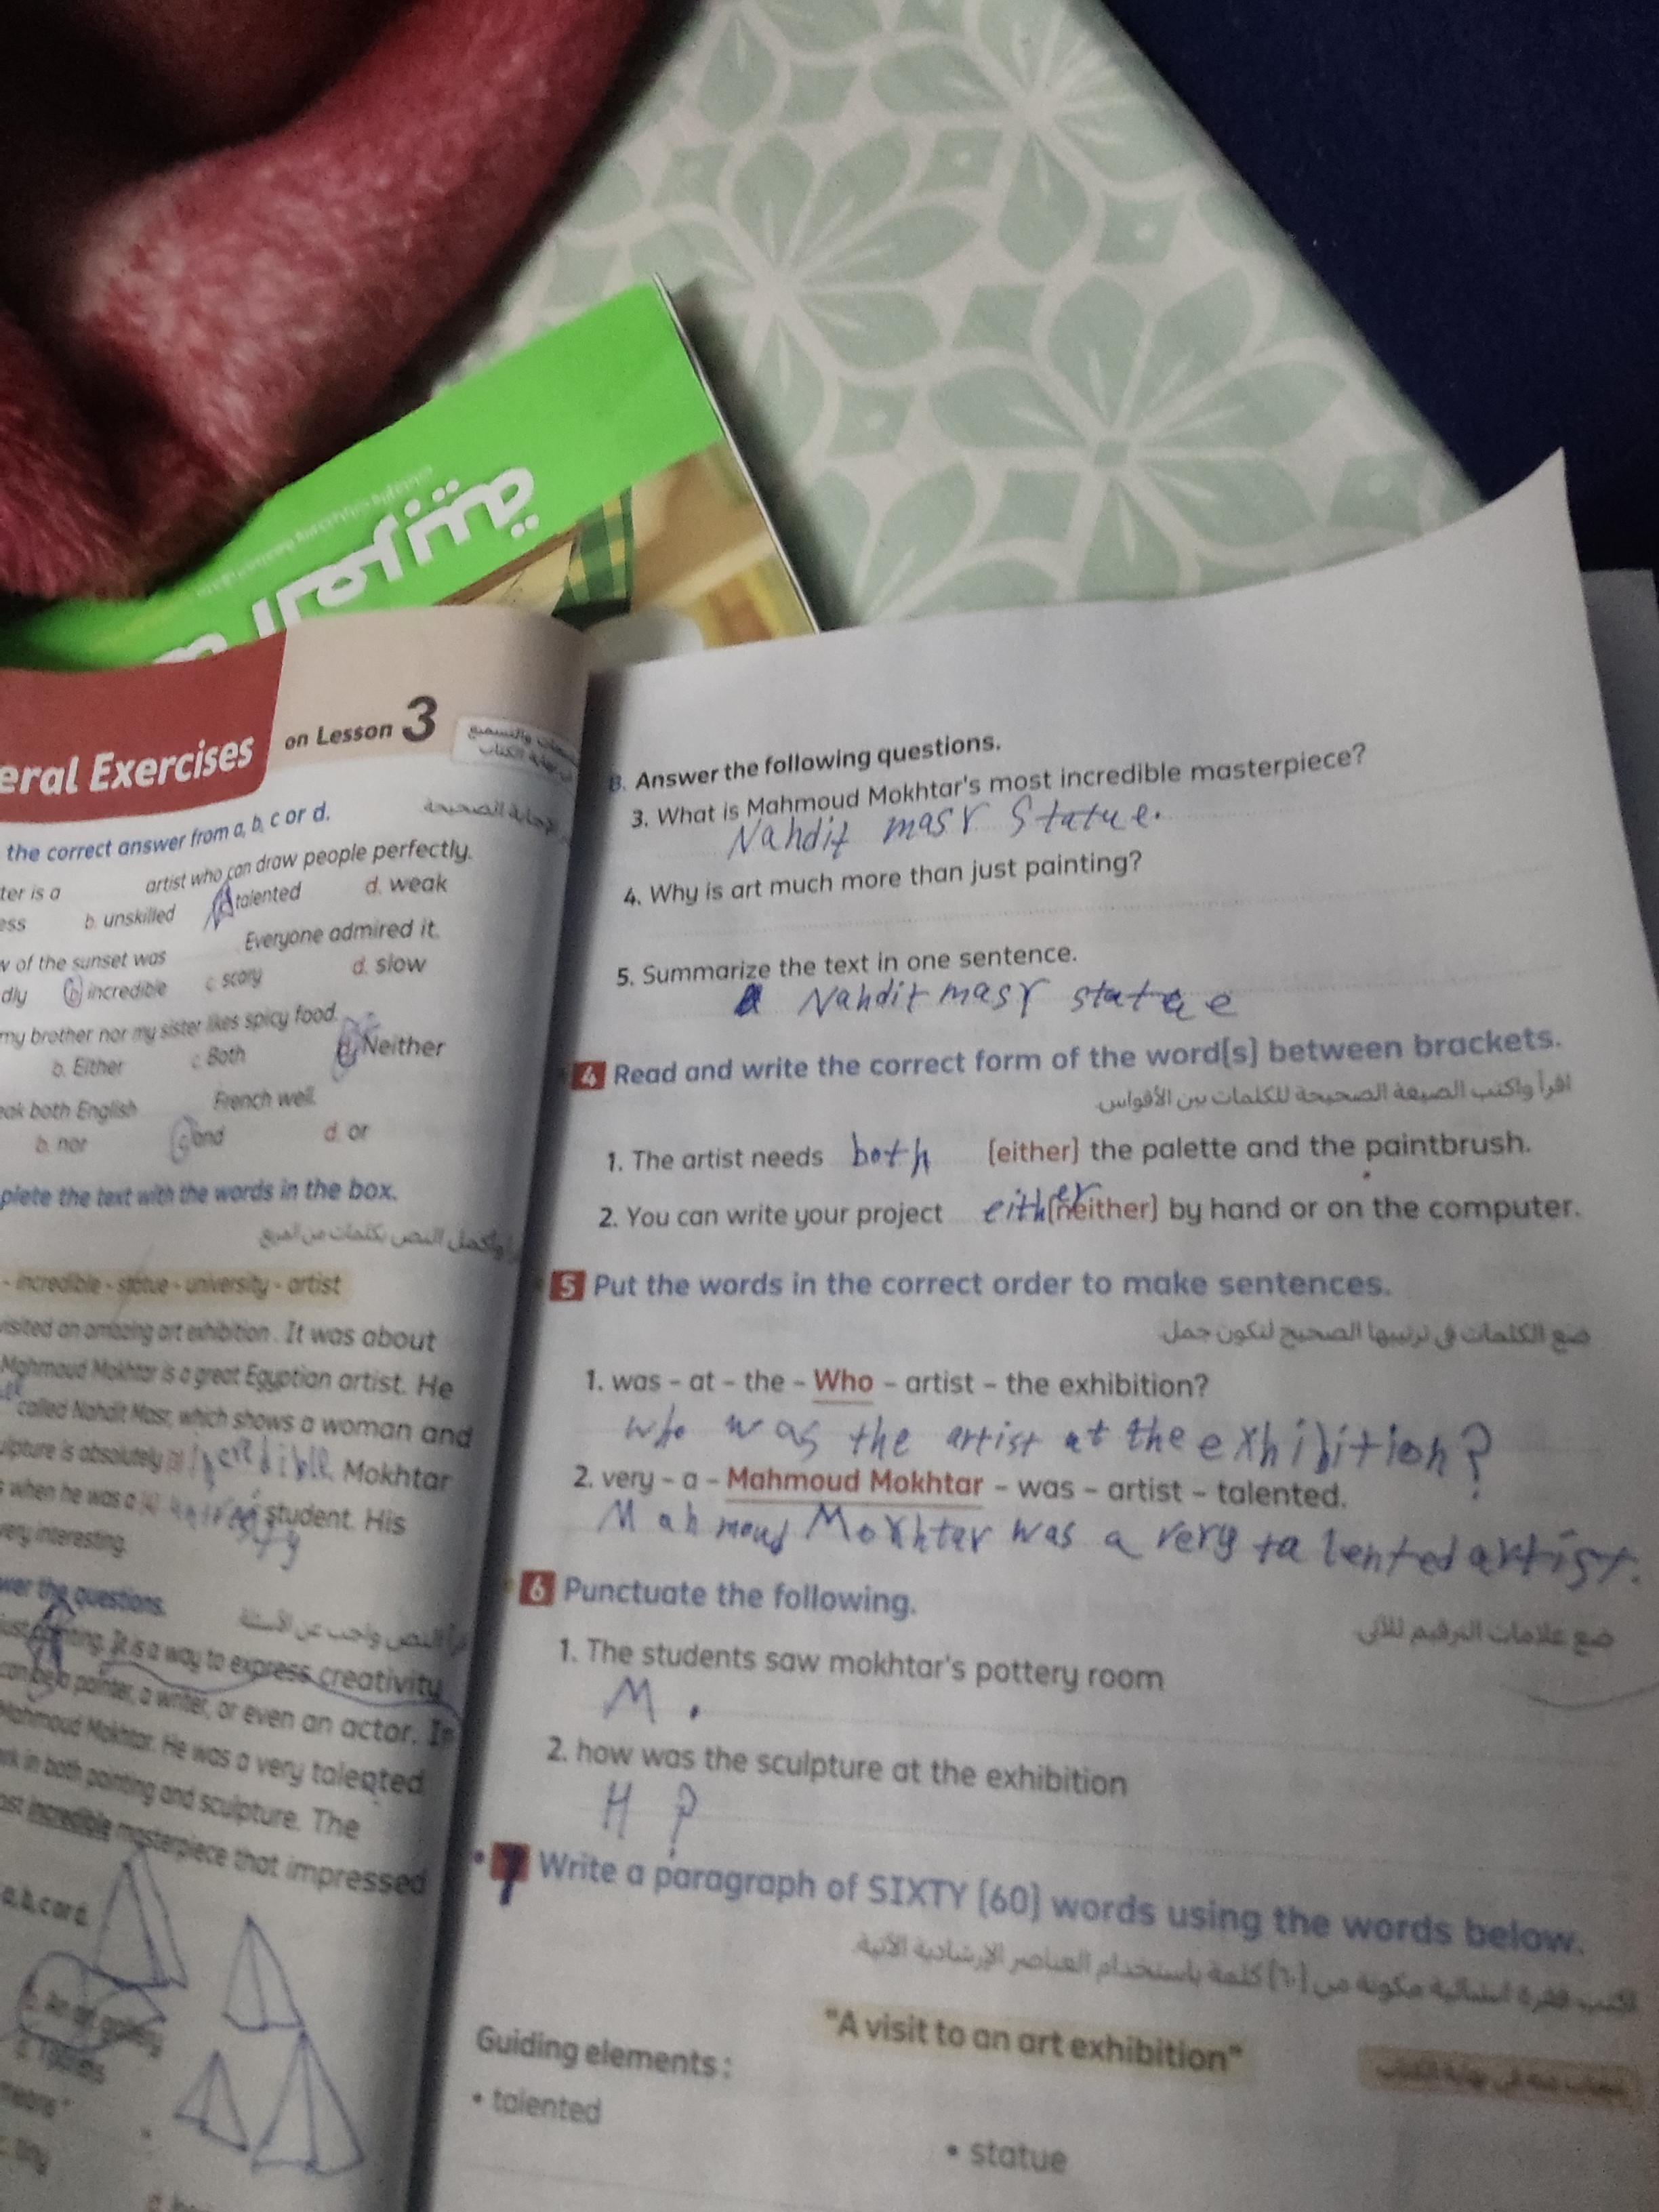 eral Exercises
on Lesson 3
the correct answer from a, b, c or d.
ter is a artist who can draw people perfectly.
ess b. unskilled talented d. weak
w of the sunset was Everyone admired it.
dly b incredible c. scary d. slow
my brother nor my sister likes spicy food.
b. Either c. Both d. Neither
eak both English French well.
b. nor c. and d. or
plete the text with the words in the box.
- incredible - statue - university - artist
visited an amazing art exhibition. It was about
Mahmoud Mokhtar is a great Egyptian artist. He
called Nahdit Masr, which shows a woman and
ulpture is absolutely Mokhtar
s when he was a student. His
very interesting.
wer the questions.
اقرأ النص وأجب عن الأسئلة
just painting. It is a way to express creativity
can be a painter, a writer, or even an actor. In
Mahmoud Mokhtar. He was a very talented
rk in both painting and sculpture. The
ost incredible masterpiece that impressed
a, b, c or d.
المتميز
B. Answer the following questions.
3. What is Mahmoud Mokhtar's most incredible masterpiece?
Nahdit masr Statue.
4. Why is art much more than just painting?
5. Summarize the text in one sentence.
Nahdit masr statue
4 Read and write the correct form of the word(s) between brackets.
اقرأ واكتب الصيغة الصحيحة للكلمات بين الأقواس
1. The artist needs both (either) the palette and the paintbrush.
2. You can write your project either (neither) by hand or on the computer.
5 Put the words in the correct order to make sentences.
ضع الكلمات في ترتيبها الصحيح لتكون جمل
1. was - at - the - Who - artist - the exhibition?
who was the artist at the exhibition?
2. very - a - Mahmoud Mokhtar - was - artist - talented.
Mahmoud Mokhtar was a very talented artist.
6 Punctuate the following.
ضع علامات الترقيم للآتي
1. The students saw mokhtar's pottery room
M .
2. how was the sculpture at the exhibition
H ?
7 Write a paragraph of SIXTY (60) words using the words below.
اكتب فقرة إنشائية مكونة من (٦٠) كلمة باستخدام العناصر الإرشادية الآتية
"A visit to an art exhibition"
Guiding elements :
• talented
• statue